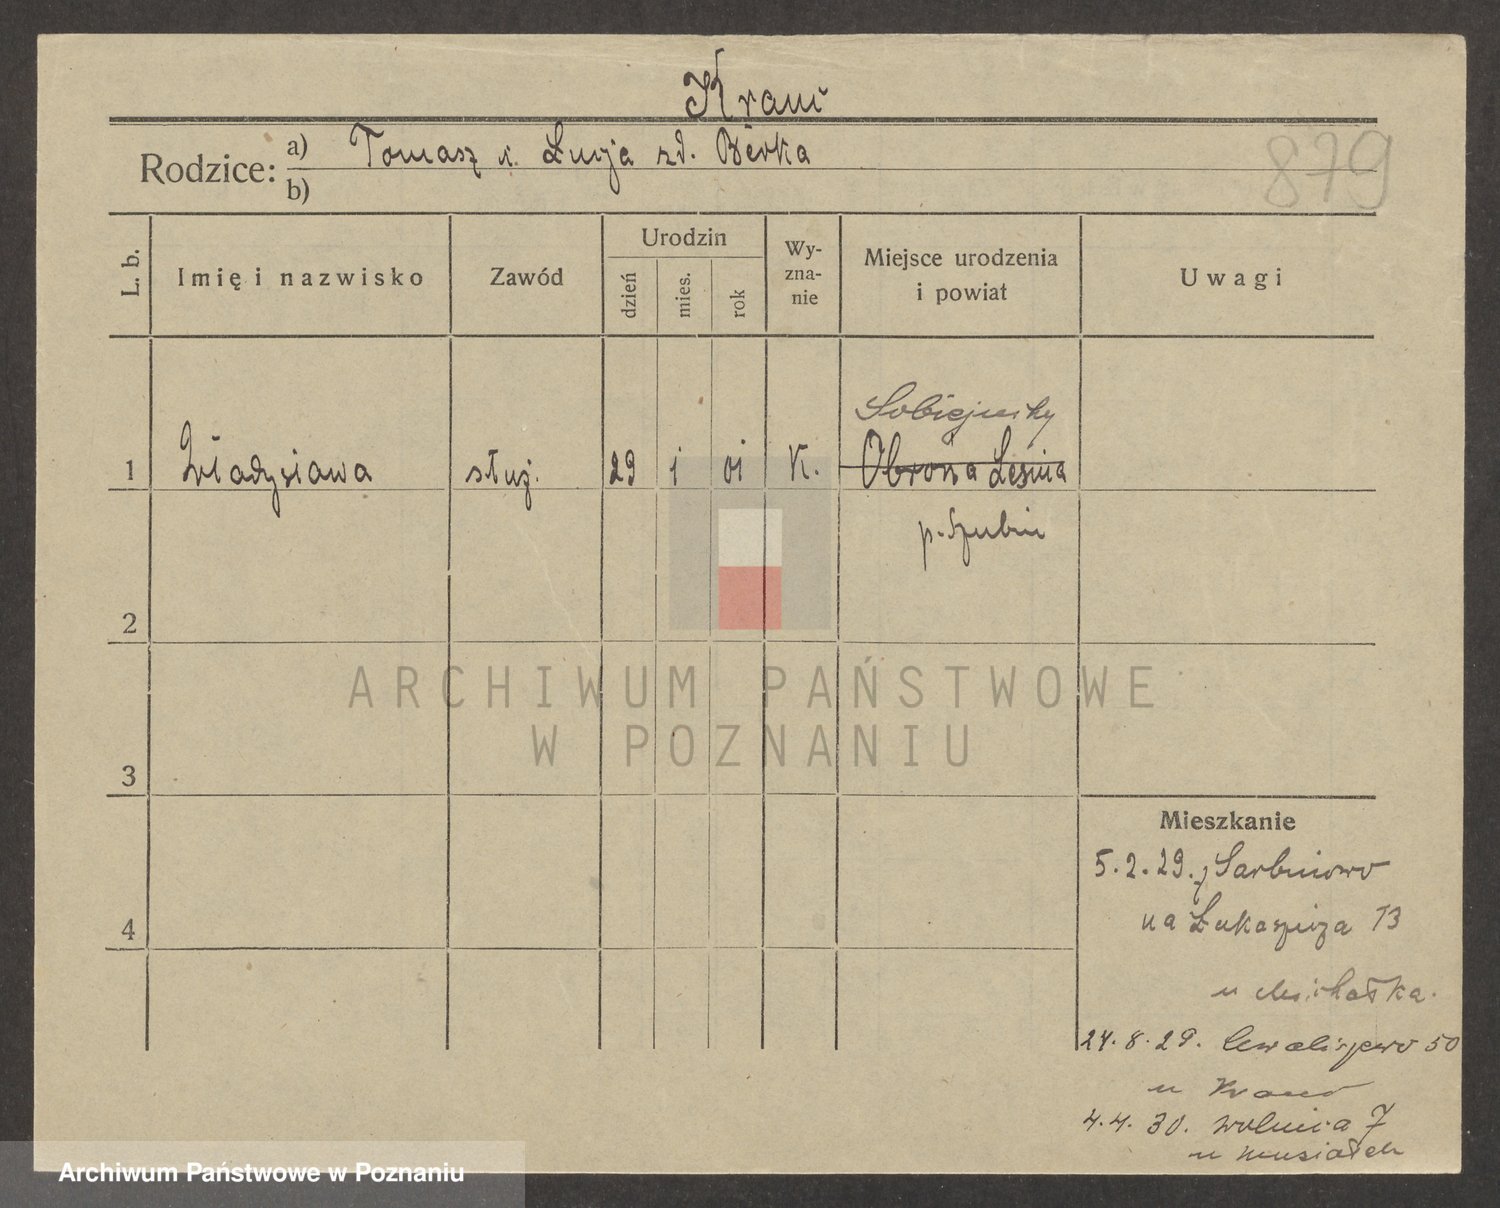 Kraus
879
Rodzice: a) Tomasz i. Łucja zd. Berka
b)
L. b.
Imię i nazwisko
Zawód
Urodzin
dzień
mies.
rok
Wy-
zna-
nie
Miejsce urodzenia
i powiat
Uwagi
Sobiejuchy
1 Władysława służ. 29 1 01 K. Obrona Leśna
p. Szubin
2
3
4
Mieszkanie
5.2.29. z Sarbinowo
na Łukaszewicza 13
u Michałka.
24.8.29. 50
u Kraus
4.4.30. Wolnica 7
u Musiałek
ARCHIWUM PAŃSTWOWE
W POZNANIU
Archiwum Państwowe w Poznaniu